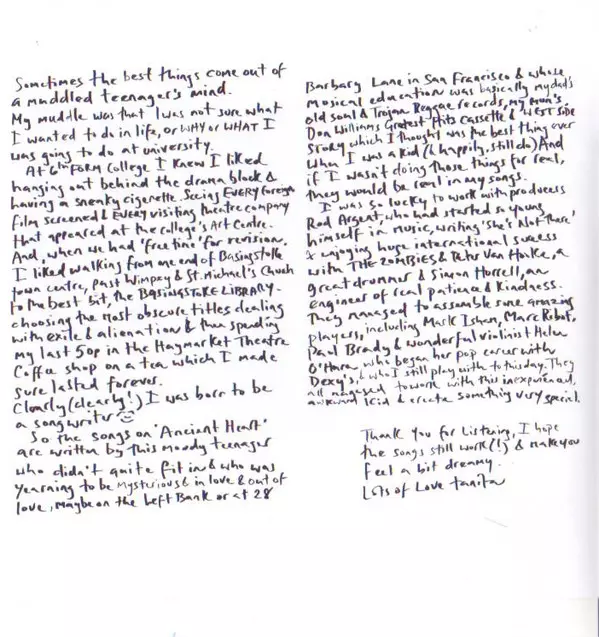 Sometimes the best things come out of
a muddled teenager's mind.
My muddle was that I was not sure what
I wanted to do in life, or WHY or WHAT I
was going to do at university.
At 6th FORM College I knew I liked
hanging out behind the drama block &
having a sneaky cigerette. Seeing EVERY foreign
film screened & EVERY visiting theatre company
that appeared at the college's Art Centre.
And, when we had 'free time' for revision.
I liked walking from one end of Basingstoke
town centre, past Wimpey & St. Michael's Church
to the best bit, the BASINGSTOKE LIBRARY -
choosing the most obscure titles dealing
with exile & alienation & then spending
my last 50p in the Haymarket Theatre
Coffee shop on a tea which I made
sure lasted forever.
Clearly (clearly!) I was born to be
a songwriter
So the songs on 'Ancient Heart'
are written by this moody teenager
who didn't quite fit in & who was
yearning to be mysterious & in love & out of
love, maybe on the Left Bank or at 28
Barbary Lane in San Francisco & whose
musical education was basically my dad's
old soul & Trojan Reggae records, my mum's
Don Williams Greatest Hits Cassette & WEST SIDE
STORY which I thought was the best thing ever
when I was a kid (& happily, still do) And
if I wasn't doing those things for real,
they would be real in my songs.
I was so lucky to work with producers
Rod Argent, who had started so young
himself in music, writing 'She's Not There'
& enjoying huge international success
with THE ZOMBIES & Peter Van Hooke, a
great drummer & Simon Hurrell, an
engineer of real patience & kindness.
They managed to assemble some amazing
players, including Mark Isham, Marc Ribot,
Paul Brady & wonderful violinist Helen
O'Hara who began her pop career with
Dexy's, & who I still play with to this day. They
all managed to work with this inexperienced,
awkward kid & create something very special.
Thank you for listening, I hope
the songs still work (!) & make you
feel a bit dreamy.
Lots of Love Tanita